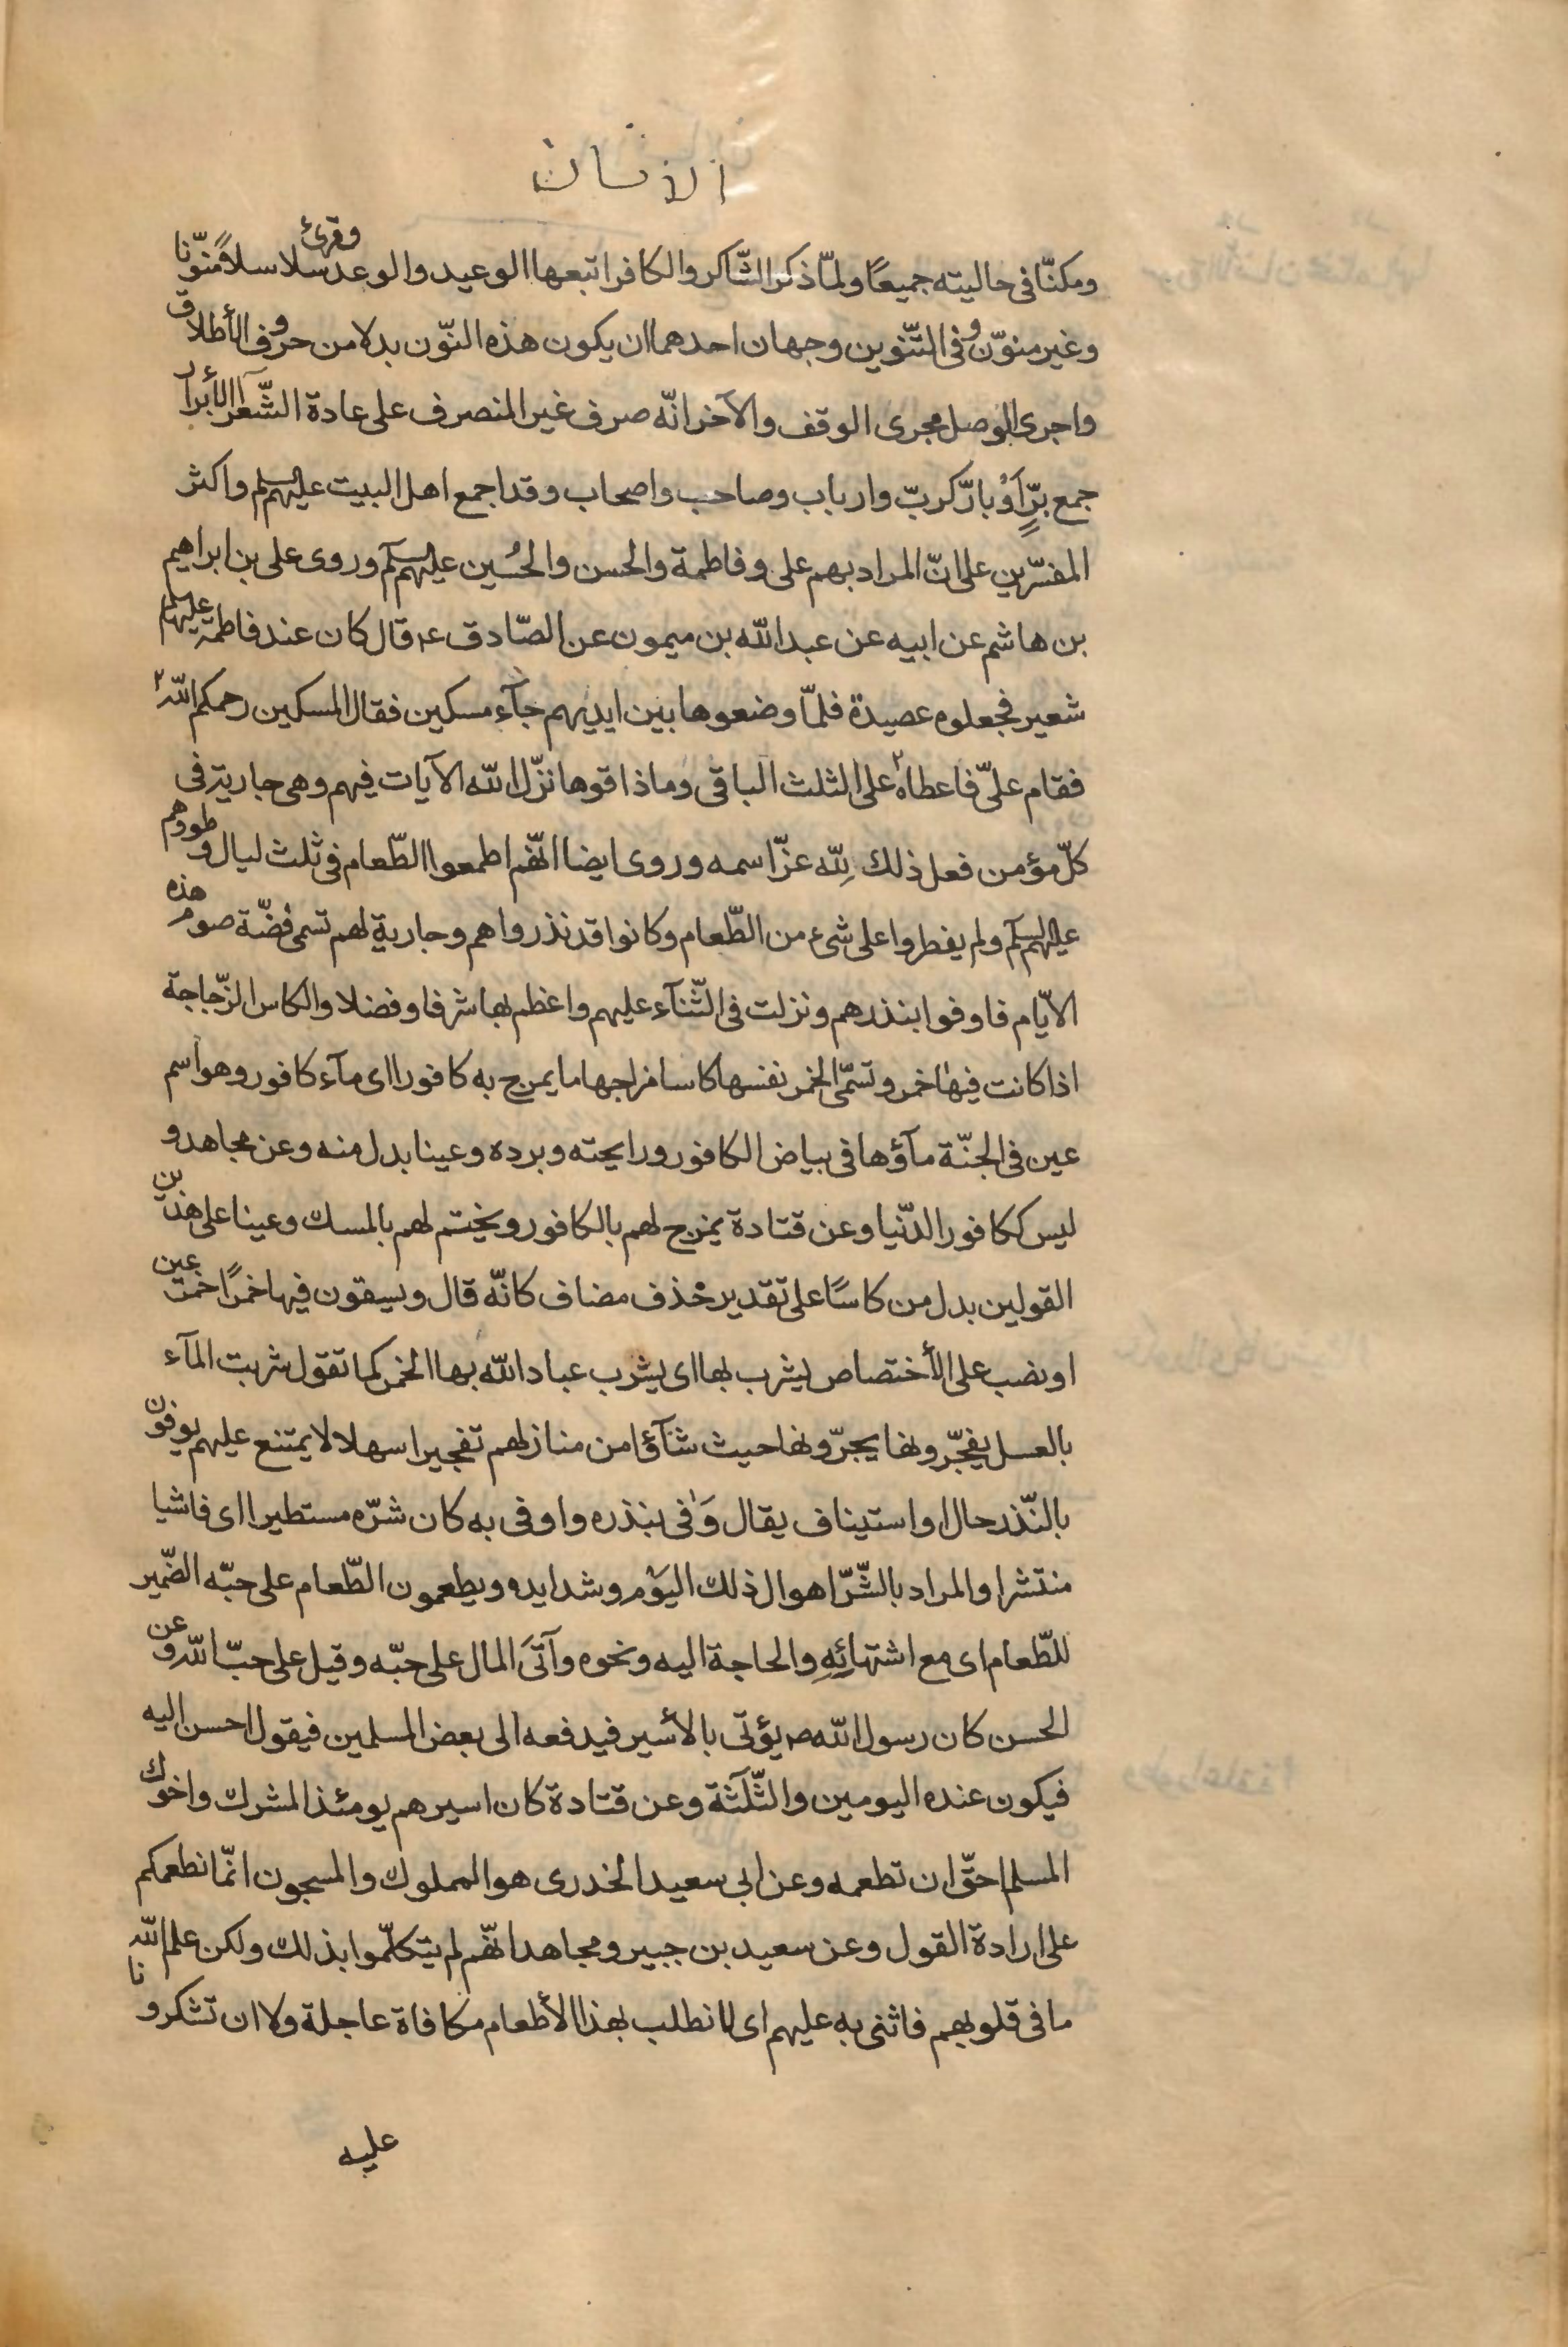 الانسان
ومكنّا فى حاليته جميعًا ولمّا ذكر الشّاكر والكافر اتبعها الوعيد والوعد وقرئ سلاسلاً منوّنا
وغير منوّن وفى التّنوين وجهان احدهما ان يكون هذه النّون بدلا من حروف الأطلاق
واجرى الوصل مجرى الوقف والآخر انّه صرف غير المنصرف على عادة الشّعرآء الأبرار
جمع برٍّ اَوْ بارّ كربّ وارباب وصاحب واصحاب وقد اجمع اهل البيت عليهم السلم واكثر
المفسّرين على انّ المراد بهم على وفاطمة والحسن والحُسين عليهم السلم وروى على بن ابراهيم
بن هاشم عن ابيه عن عبد الله بن ميمون عن الصّادق ع قال كان عند فاطمة عليها السلم
شعير فجعلوه عصيدة فلمّا وضعوها بين ايديهم جآء مسكين فقال المسكين رحمكم اللّه
فقام علىّ فاعطاه على الثلث الباقى وما ذاقوها نزّل الله الآيات فيهم وهى جارية فى
كلّ مؤمن فعل ذلك لِلّه عزّ اسمه وروى ايضا انّهم اطمعوا الطّعام فى ثلث ليال وطووهم
عليهم السلم ولم يفطروا على شىء من الطّعام وكانوا قد نذرواهم وجارية لهم تسمى فضّة صوم هذه
الايّام فاوفوا بنذرهم ونزلت فى الثّنآء عليهم واعظم بها شرفا وفضلا والكاس الزّجاجة
اذا كانت فيها خمر وتسمّى الخمر نفسها كاسا مزاجها ما يمزج به كافورا اى مآء كافور وهو اسم
عين فى الجنّة مآؤها فى بياض الكافور ورايحته وبرده وعينا بدل منه وعن مجاهد و
ليس ككافور الدّنيا وعن قتادة يمزج لهم بالكافور ويختم لهم بالمسك وعينا على هذين
القولين بدل من كاسًا على تقدير حذف مضاف كانّه قال ويسقون فيها خمرًا خمر عين
او نصب على الأختصاص يشرب بها اى يشرب عباد الله بها الخمر كما تقول شربت المآء
بالعسل يفجّرونها يجرّونها حيث شآؤا من منازلهم تفجيرا سهلا لا يمتنع عليهم يوفون
بالنّذر حال او استيناف يقال وَفٰى بنذره واوفى به كان شرّه مستطيرا اى فاشيا
منتشرا والمراد بالشّرّ اهوال ذلك اليوم وشدايده ويطعمون الطّعام على حبّه الضّمير
للطّعام اى مع اشتهائِهِ والحاجة اليه ونحوه وآتَى المال على حبّه وقيل على حبّ اللّه وعن
الحسن كان رسول الله ص يؤتى بالأسير فيدفعه الى بعض المسلمين فيقول احسن اليه
فيكون عنده اليومين والثّلثة وعن قتادة كان اسيرهم يومئذ المشرك واخوك
المسلم احقّ ان تطعمه وعن ابى سعيد الخدرى هو المملوك والمسجون انّما نطعمكم
على ارادة القول وعن سعيد بن جبير ومجاهد انّهم لم يتكلّموا بذلك ولكن علم اللّه
ما فى قلوبهم فاثنى به عليهم اى لا نطلب بهذا الأطعام مكافاة عاجلة ولا ان تشكرونا
عليه